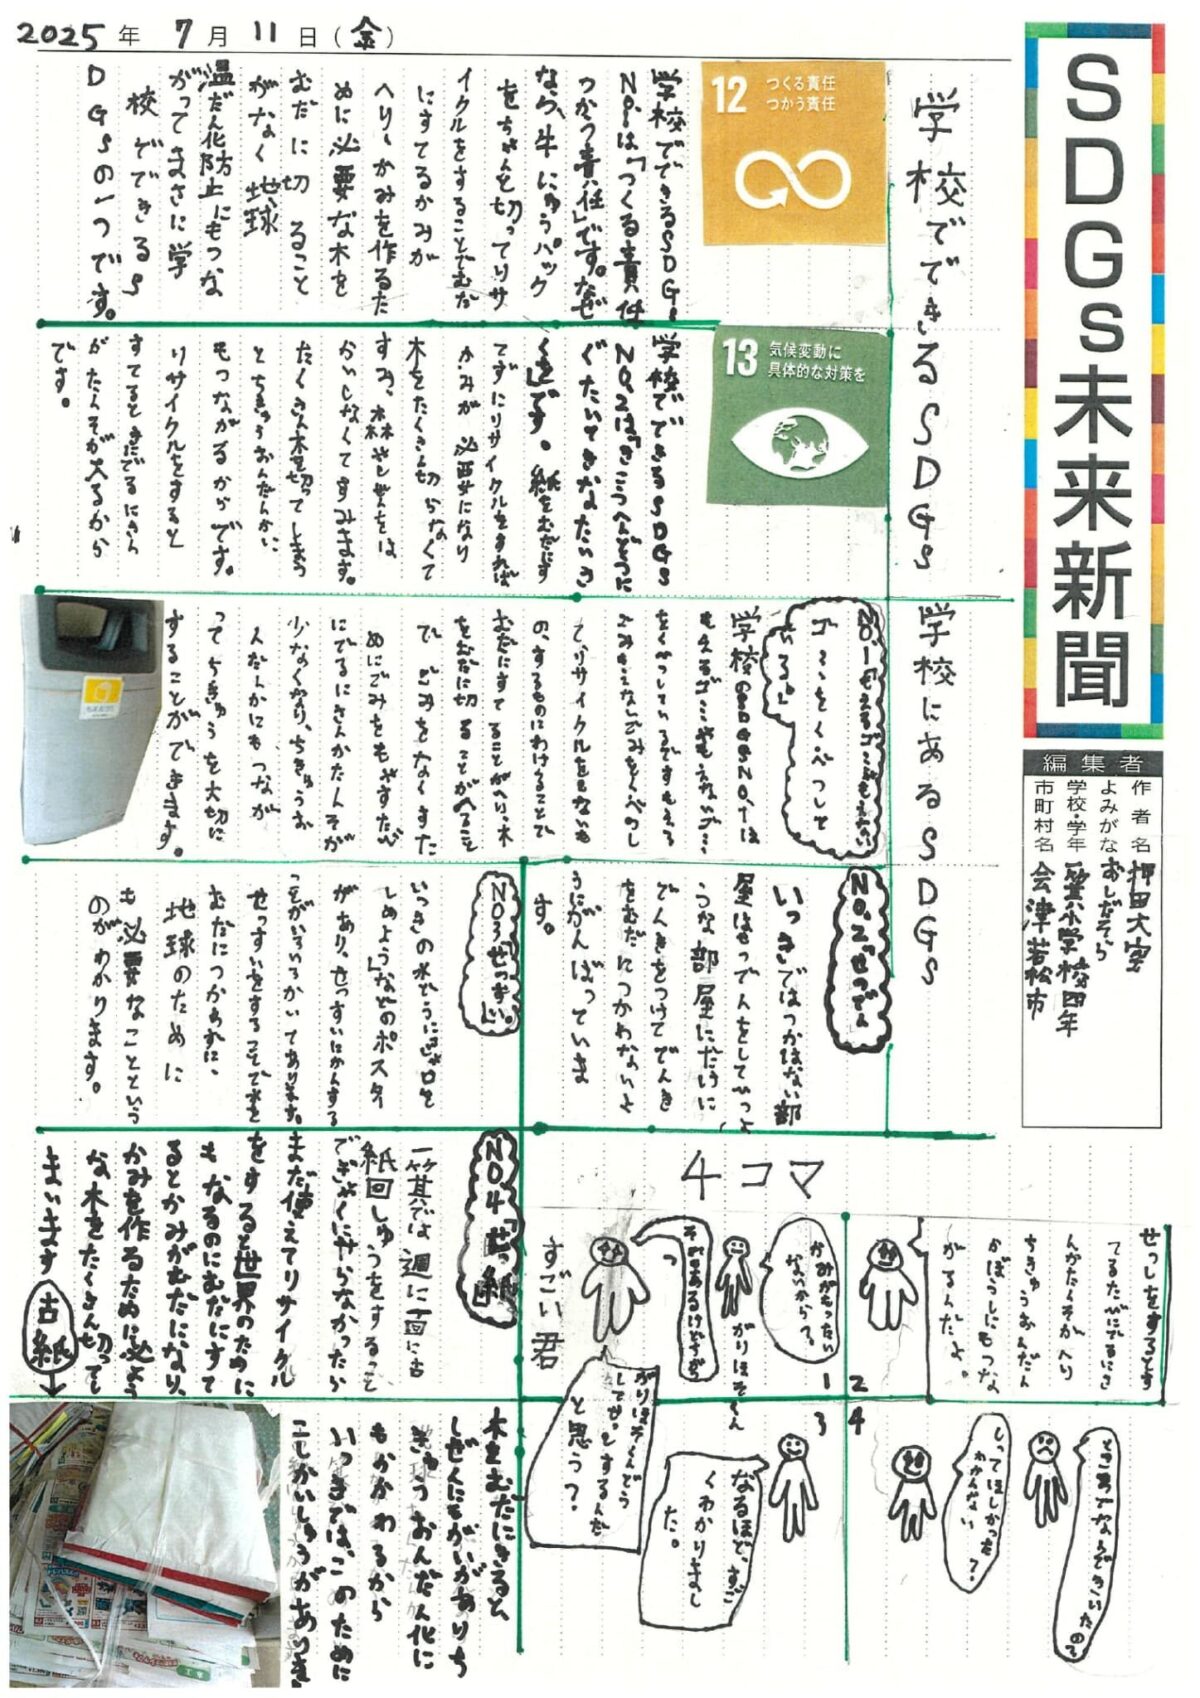 2025年 7月 11日(金)
SDGs未来新聞
編集者
作者名 押田大空
よみがな おしだそら
学校・学年 一箕小学校四年
市町村名 会津若松市
学校でできるSDGs
12 つくる責任
つかう責任
学校でできるSDGs
No.1は「つくる責任
つかう責任」です。なぜ
なら、牛にゅうパック
をちゃんと切ってリサ
イクルをすることでむだ
にすてるかみが
へり、かみを作るた
めに必要な木を
むだに切ること
がなく地球
温だん化防止にもつな
がってまさに学
校でできるS
DGsの一つです。
13 気候変動に
具体的な対策を
学校でできるSDGs
No.2は「きこうへんどうに
ぐたいてきなたいさ
くを」です。紙をむだにす
てずにリサイクルをすれば
かみが必要になり
木をたくさん切らなくて
すみ、森やしぜんをは
かいしなくてすみます。
たくさん木を切ってしまう
とちきゅうおんだんかに
もつながるからです。
リサイクルをすると
すてるときにでるにさん
かたんそがへるから
です。
学校にあるSDGs
No.1「もえるゴミともえない
ゴミをくべつして
いる。」
学校のSDGsNo.1は
もえるゴミともえないゴミ
をくべつしているです。もえる
ごみもえないごみをくべつし
て、リサイクルをしないも
の、するものにわけることで
むだにすてることがへり、木
をむだに切ることがへること
で、ごみをなくすた
めにごみをもやすたび
にでるにさんかたんそが
少なくなり、ちきゅうお
んだんかにもつなが
ってちきゅうを大切に
することができます。
No.2「せつでん」
いっきではつかはない部
屋はせつでんをしていつよ
うな部屋にだけに
でんきをつけてでんき
をむだにつかわないよ
うにがんばっていま
す。
No.3「せっすい」
いっきの水どうにはじゃ口を
しめようなどのポスター
があり、せっすいにかんする
ことがいろいろかいてあります。
せっすいをすることで水を
むだにつかわずに、
地球のために
も必要なことという
のがわかります。
No.4「古紙」
一箕では週に一回に古
紙回しゅうをすること
でぎゃくにやらなかったら
まだ使えてリサイクル
をすると世界のために
もなるのにむだにすて
るとかみがむだになり、
かみを作るために必よう
な木をたくさん切ってし
まいます
古紙
木をむだにきると、
しぜんにもがいがありち
きゅうおんだん化に
もかかわるから
いっきでは、このために
こしかいしゅうがあります
4コマ
1
かみがもったい
ないから?
がりほそくん
それもあるけどちが
う
すごい君
2
せっしをするとす
てるためにでるにさ
んかたんそがへり
ちきゅうおんだん
かぼうしにもつな
がるんだよ。
3
がりほそくんどう
してせっしするんだ
と思う?
なるほど、すご
くわかりまし
た。
4
ところでなんできいたの?
しってほしかった
わかんない
?